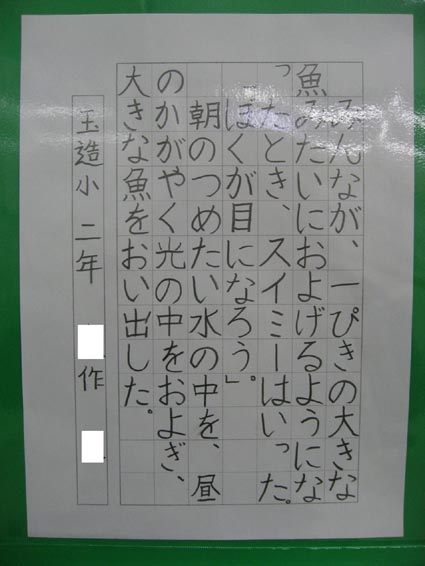 みんなが、一ぴきの大きな
魚みたいにおよげるようにな
ったとき、スイミーはいった。
「ぼくが目になろう」。
朝のつめたい水の中を、昼
のかがやく光の中をおよぎ、
大きな魚をおい出した。
玉造小 二年 作